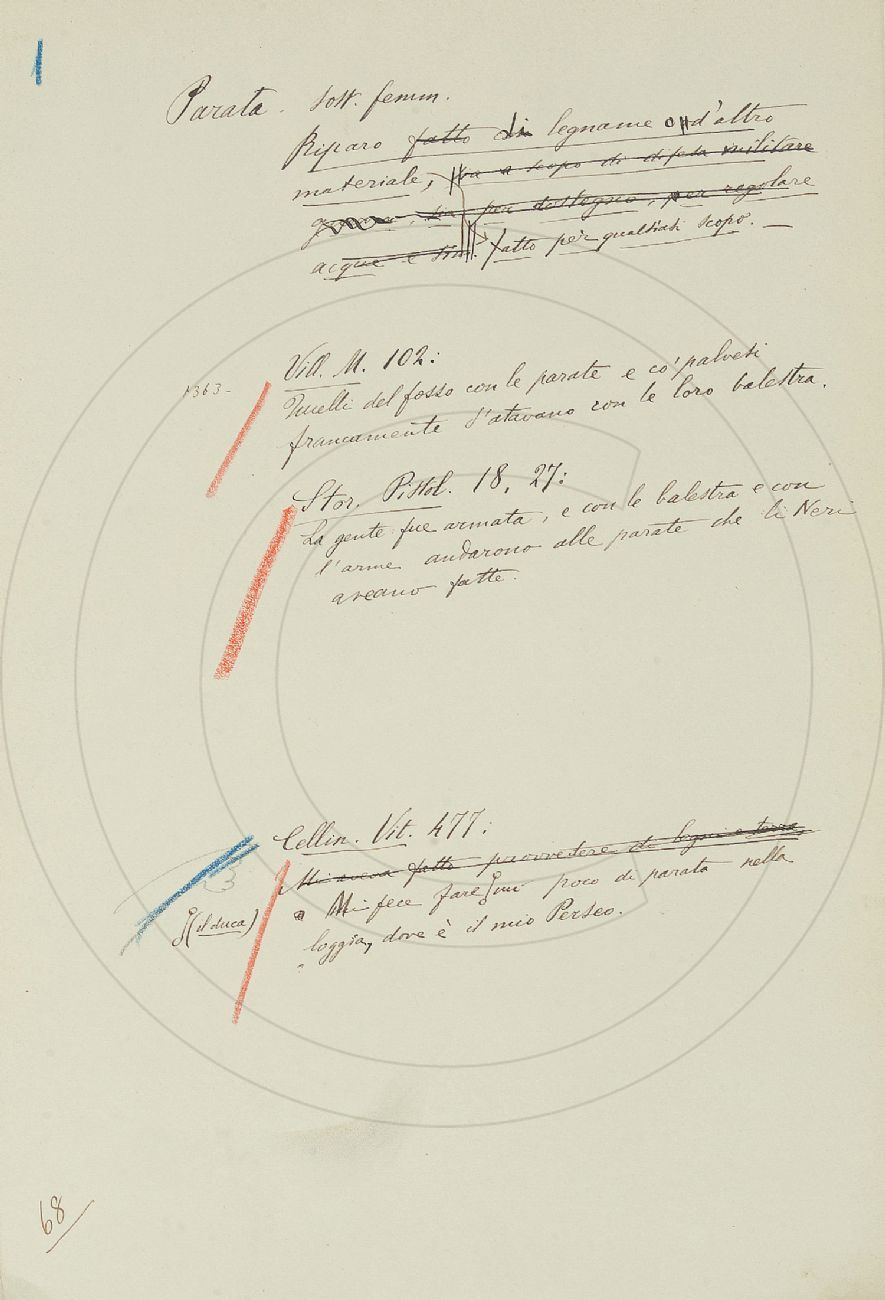 Parata. sost. femm.
Riparo fatto di legname o d'altro
materiale, o a scopo di difesa militare
per sostegno, per regolare
acque e sim. fatto per qualsiasi scopo. —
Vill. M. 102:
1363 -
Quelli del fosso con le parate e co' palvesi
francamente s'atavano con le loro balestra.
Stor. Pistol. 18, 27:
La gente fue armata, e con le balestra e con
l'arme andarono alle parate che li Neri
aveano fatte.
Cellin. Vit. 477:
Mi aveva fatto provvedere di legni e terra
Mi fece fare un poco di parata nella
(il duca)
loggia, dove è il mio Perseo.
68